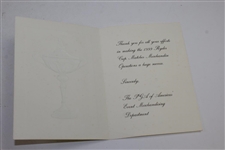 Thank you for all your efforts
in making the 1999 Ryder
Cup Matches Merchandise
Operations a huge success.
Sincerely,
The PGA of America
Event Merchandising
Department